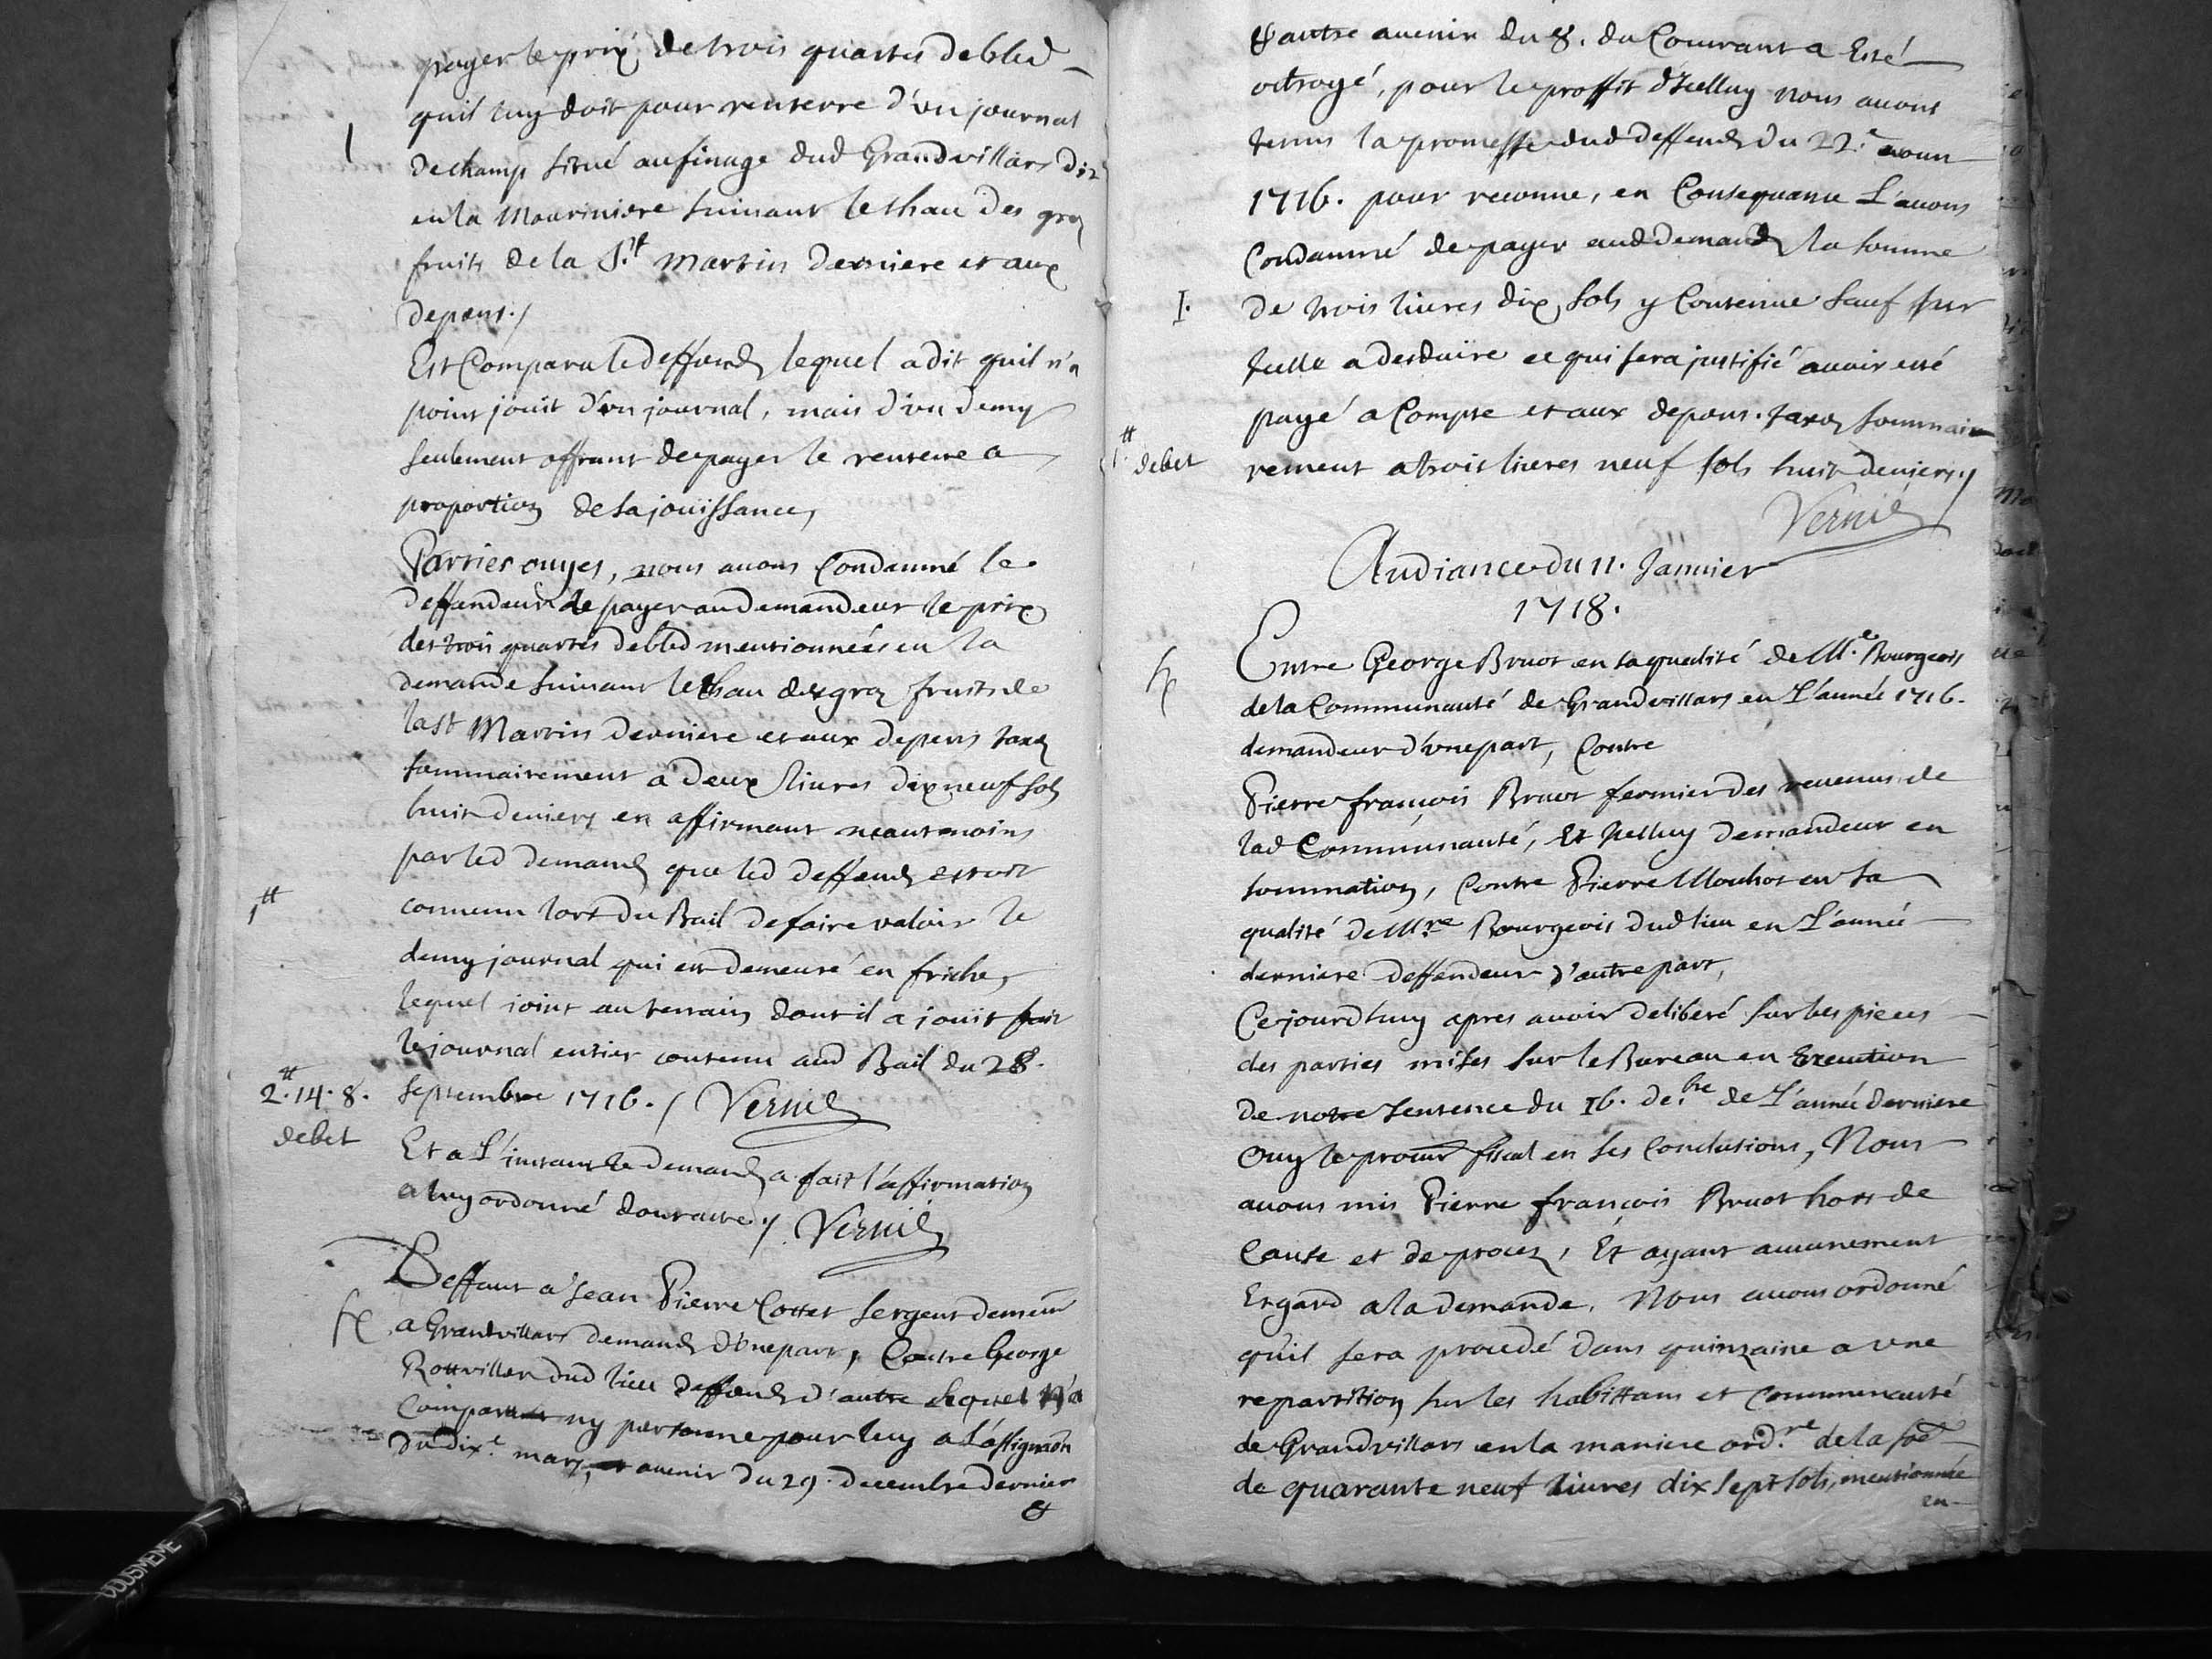 payer le prix de trois quartes de bled
quil luy doit pour renterre d'un journal
de champ situé au finage dud Grandvillars dit
en la Mouriniere suivant leshau des gros
fruits de la S.t Martin derniere et aux
depens./
Est Comparu led deffend lequel a dit quil n'a
point jouit d'un journal, mais d'un demy
seulement offrant de payer le renterre a
proportion de sa joüissance,
Parties ouyes, nous auons Condamné le
deffendeur de payer au demandeur le prix
des trois quartes de bled mentionnées en la
demande suiuant leshau des gros fruits de
la St Martin derniere et aux depens taxez
sommairement a deux liures dix neuf sols
huit deniers en affirmant neantmoins
par led demand que led deffend estoit
conuenu lors du Bail de faire valoir le
demy journal qui est demeuré en friche,
lequel joint au terrain dont il a jouit fait
le journal entier contenu aud Bail du 28.
2.tt 14. 8. Septembre 1716. / Vernié
debet
Et a L'instant le demand a fait l'affirmation
a luy ordonné dont acte ./ Vernié
Deffaut a Jean Pierre Cottet sergent demeur
a Grandvillars demand d'vne part, Contre George
Rottviller dud lieu deffend d'autre lequel n'a
Comparu ny personne pour luy a L'assignaõn
du dix.e mars, auenir du 29. decembre dernier
&
& autre auenir du 8. du Courant a Esté
octroyé, pour le proffit d'Icelluy nous auons
tenus la promesse dud deffend du 22.e
1716. pour reconnue, en Consequance L'auons
Condamné de payer aud demand la somme
I. de trois liures dix sols y Contenue sauf sur
Icelle a desduire ce qui sera justifié auoir esté
payé a Compte et aux depens. taxez sommai
debet rement a trois liures neuf sols huit deniers./
Vernié
Audiance du 11. Januier
1718.
Entre George Bruot en sa qualité de M.e Bourgeois
de la Communauté de Grandvillars en L'année 1716.
demandeur d'vne part, Contre
Pierre françois Bruot fermier des reuenus de
lad Communauté, Et Icelluy demandeur en
sommation, Contre Pierre Mouhot en sa
qualité de M.re Bourgeois dud lieu en L'année
derniere deffendeur d'autre part,
Cejourdhuy apres auoir deliberé sur les pieces
des parties mises sur le Bureau en Execution
de notre sentence du 16. de.bre de L'année derniere
Ouy le procur fiscal en ses Conclusions, Nous
auons mis Pierre françois Bruot hors de
Cause et de procez, Et ayant aucunement
Esgard a la demande, Nous auons ordonné
qu'il sera procedé dans quinzaine a vne
repartition sur les habittans et Communauté
de Grandvillars en la maniere ord.re de la soe
de quarante neuf liures dix sept sols, mentionnée
en